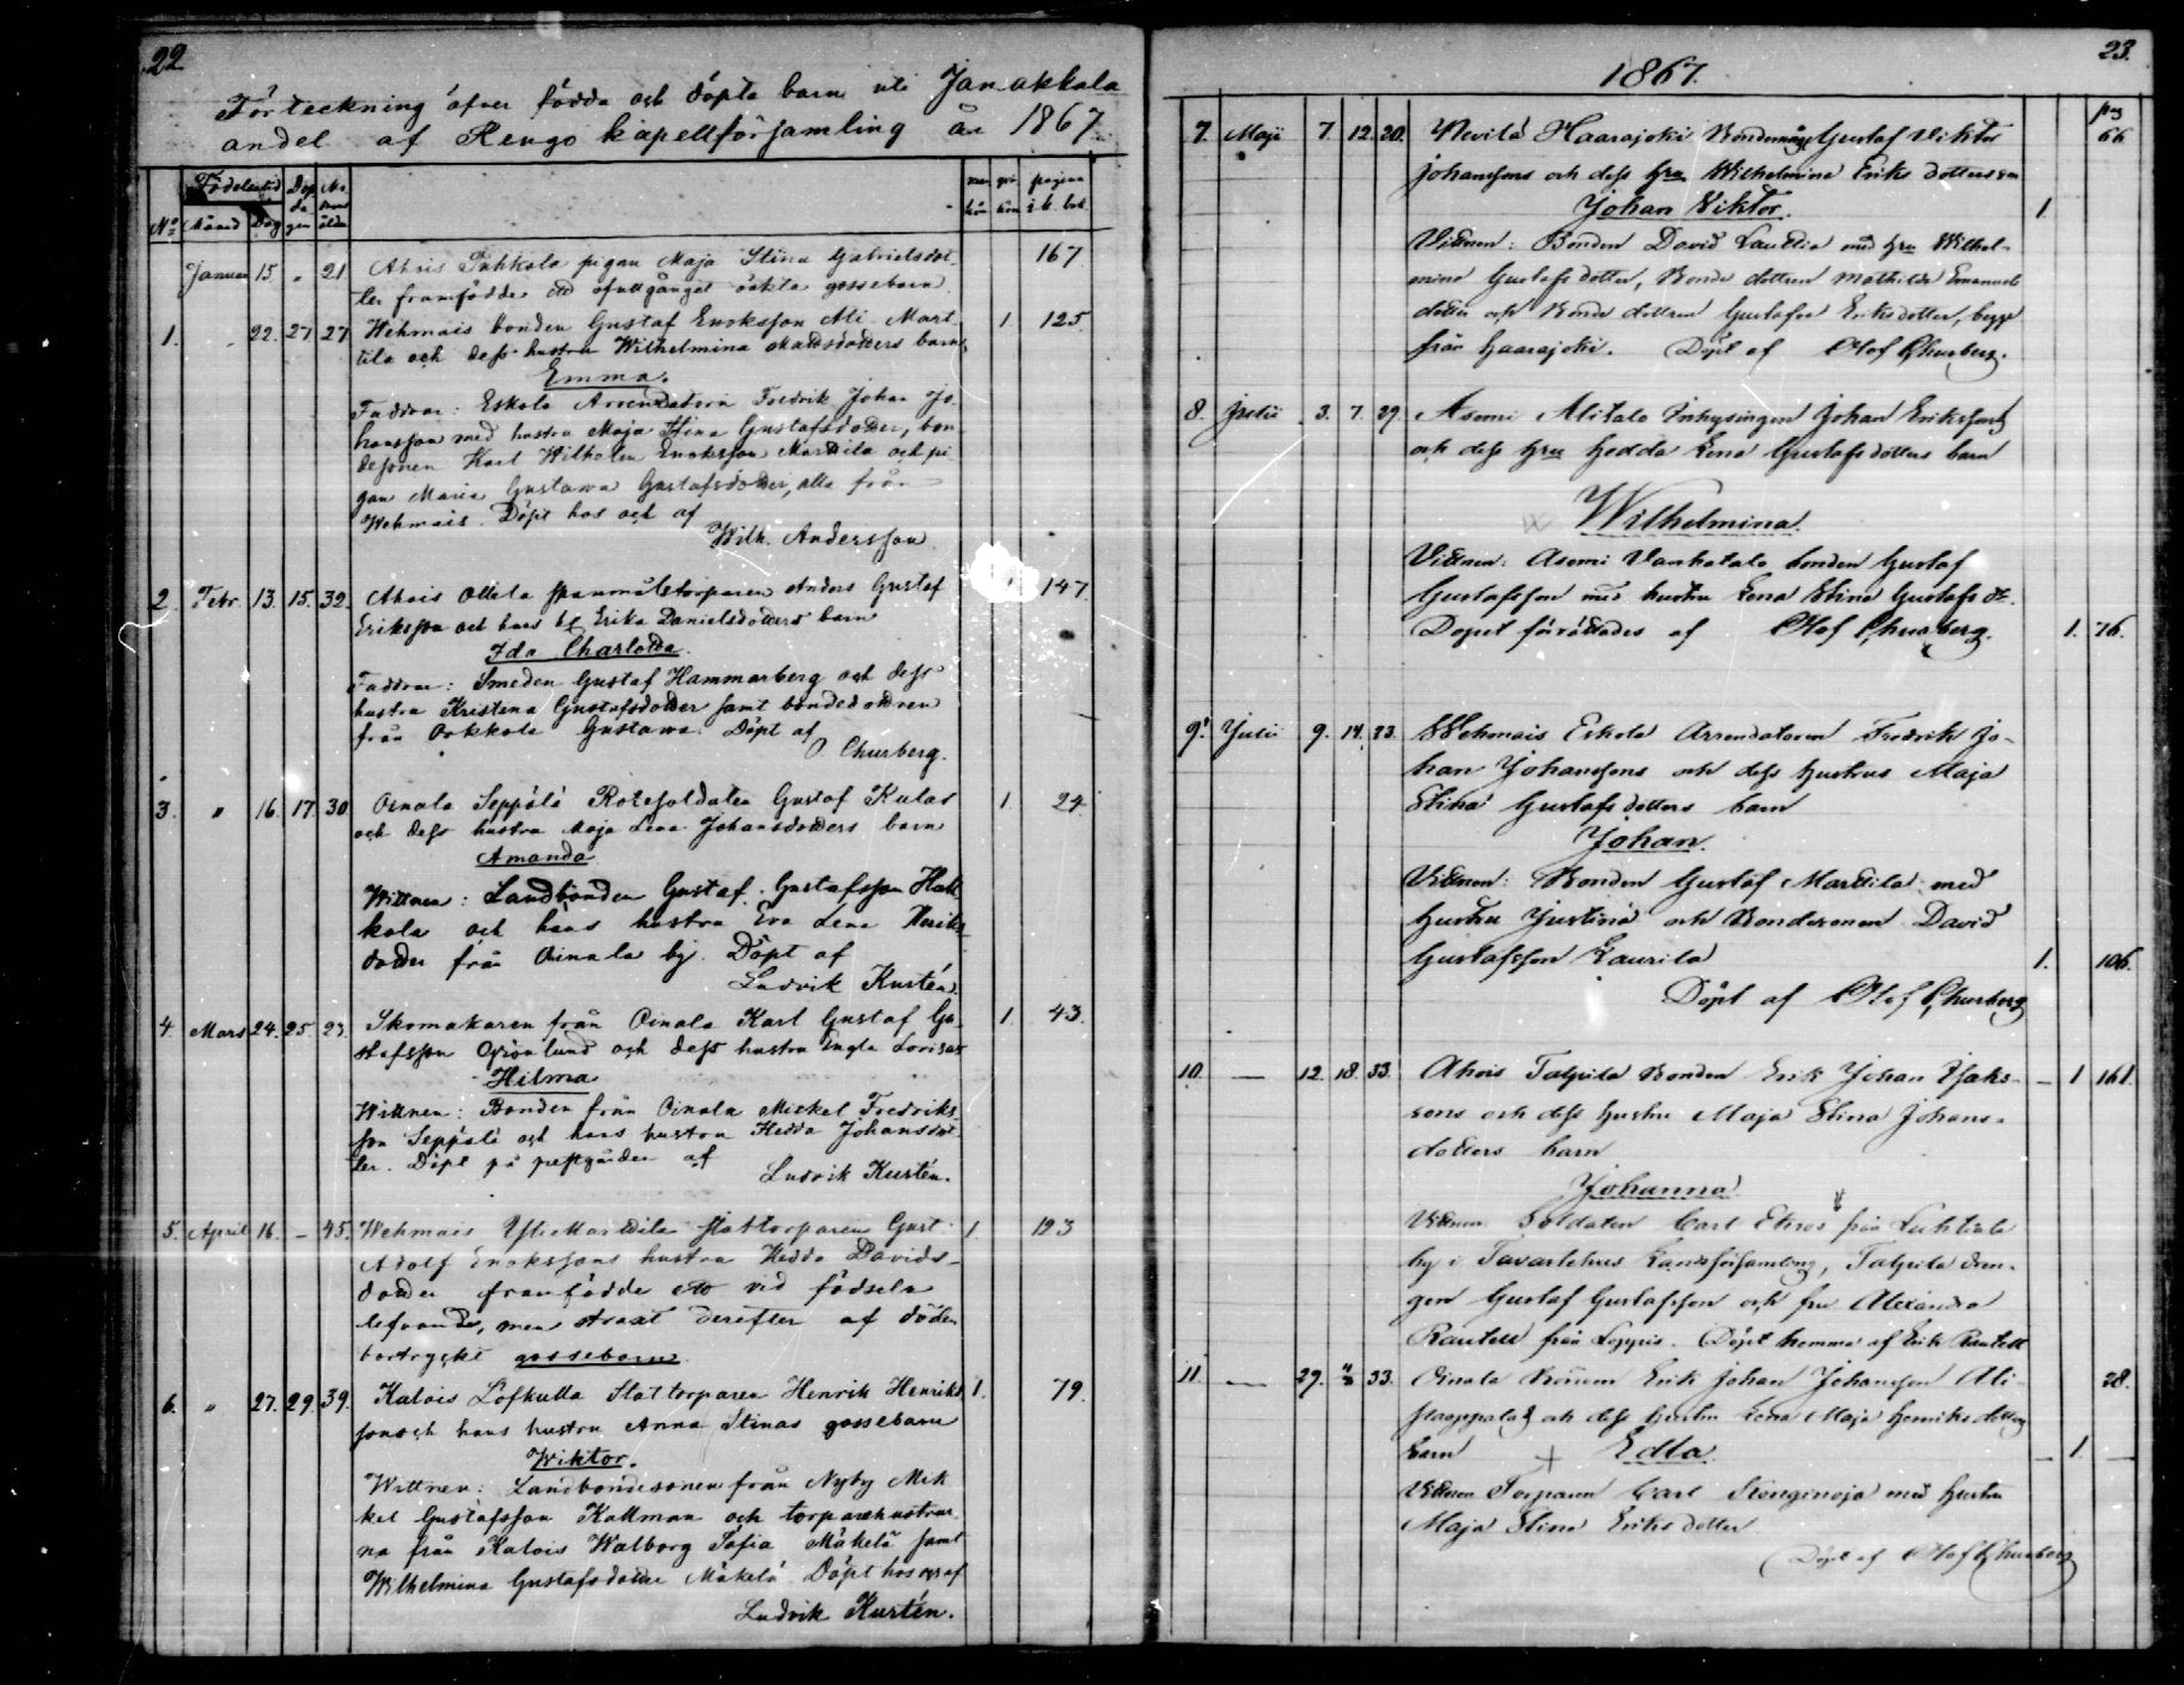 22
Förteckning öfver födda och döpta barn uti Janakkala
andel af Rengo kapellförsamling år 1867.
Födelsetid Dop Mo
da drens
No Månad Dag gen ålder
man qvin pagina
kön kön i k. bok.
Januari 15 " 21 Ahois Puhkala pigan Maja Stina Gabrielsdot-
ter framfödde ett ofullgånget oäkta gossebarn. 167
1. " 22. 27 27 Wehmais bonden Gustaf Enoksson Ali Mart- 1 125.
tila och dess hustru Wilhelmina Mattsdotters barn
Emma.
Faddrar: Eskola Arrendatorn Fredrik Johan Jo-
hansson med hustru Maja Stina Gustafsdotter, bon-
desonen Karl Wilhelm Enoksson Marttila och pi-
gan Maria Gustawa Gustafsdotter, alla från
Wehmais. Döpt hos och af
Wilh. Andersson
2. Febr. 13. 15. 32. Ahois Ollila spanmålstorparen Anders Gustaf 147.
Eriksson och hans h Erika Danielsdotters barn
Ida Charlotta.
Faddrar: Smeden Gustaf Hammarberg och dess
hustru Kristina Gustafsdotter samt bondedottren
från Orkkola Gustawa. Döpt af
O Churberg.
3. " 16. 17. 30 Oinala Seppälä Rotesoldaten Gustaf Kulas 1. 24
och dess hustru Maja Lena Johansdotters barn
Amanda
Wittnen: Landbonden Gustaf Gustafsson Hak-
kola och hans hustru Eva Lena Henriks-
dotter från Oinala by. Döpt af
Ludvik Kustén.
4. Mars 24. 25. 23. Skomakaren från Oinala Karl Gustaf Gu- 1. 43.
stafsson Grönlund och dess hustru Engla Lovisas
Hilma
Wittnen: Bonden från Oinala Mickel Fredriks-
son Seppälä och hans hustru Hedda Johansdot-
ter. Döpt på prestgården af
Ludvik Kustén.
5. April 16. - 45. Wehmais Yli Marttila stattorparen Gust. 1. 123
Adolf Enokssons hustru Hedda Davids-
dotter framfödde ett vid födseln
lefvande, men straxt derefter af döden
bortryckt gossebarn.
6. " 27. 29. 39. Kalois Löfkulla Stattorparen Henrik Henriks 1. 79.
son och hans hustru Anna Stinas gossebarn
Wiktor.
Wittnen: Landbondesonen från Nyby Mik-
kel Gustafsson Kallman och torparehustrur-
na från Kalois Walborg Sofia Mäkelä samt
Wilhelmina Gustafsdotter Mäkelä. Döpt hos och af
Ludvik Kustén.
23.
1867.
pag
7. Maji 7. 12. 20. Nevilä Haarajoki Bondemåg Gustaf Viktor 66
Johanssons och dess hru Wilhelmina Eriks dotters son
Johan Viktor. 1
Vittnen: Bonden David Lauttia med hru Wilhel-
mina Gustafs dotter, Bonde dottren Mathilda Emanuels
dotter och Bonde dottren Gustafva Eriksdotter, begge
från Haarajoki. Döpt af Olof Churberg.
8. Julii 3. 7. 29. Asemi Alitalo Inhysingen Johan Erikssons
och dess hru Hedda Lena Gustafs dotters barn
Wilhelmina.
Vittnen: Asemi Vanhatalo bonden Gustaf
Gustafsson med hustru Lena Stina Gustafs dr.
Dopet förrättades af Olof Churberg. 1. 76.
9. Julii 9. 14. 23. Wehmais Eskola Arrendatorn Fredrik Jo-
han Johanssons och dess hustrus Maja
Stina Gustafs dotters barn
Johan.
Vittnen: Bonden Gustaf Marttila med
hustru Justina och Bondesonen David
Gustafsson Laurila 1. 106.
Döpt af Olof Churberg
10. — 12. 18. 33. Ahois Talpila Bonden Erik Johan Isaks- - 1 161.
sons och dess hustru Maja Stina Johans-
dotters barn
Johanna
Vittnen Soldaten Carl Ehros från Luhtiala
by i Tavastehus Landsförsamling, Talpila dren-
gen Gustaf Gustafsson och fru Alexandra
Rantell från Loppis. Döpt hemma af Erik Rantell
11. — 29. 33. Oinala Erik Johan Johansson Ali 28.
och dess hustru Lena Maja Henriksdotters
barn + Edla. - 1. —
Vittnen Torparen Carl Stenginoja med hustru
Maja Stina Eriks dotter
Döpt af Olof Churberg